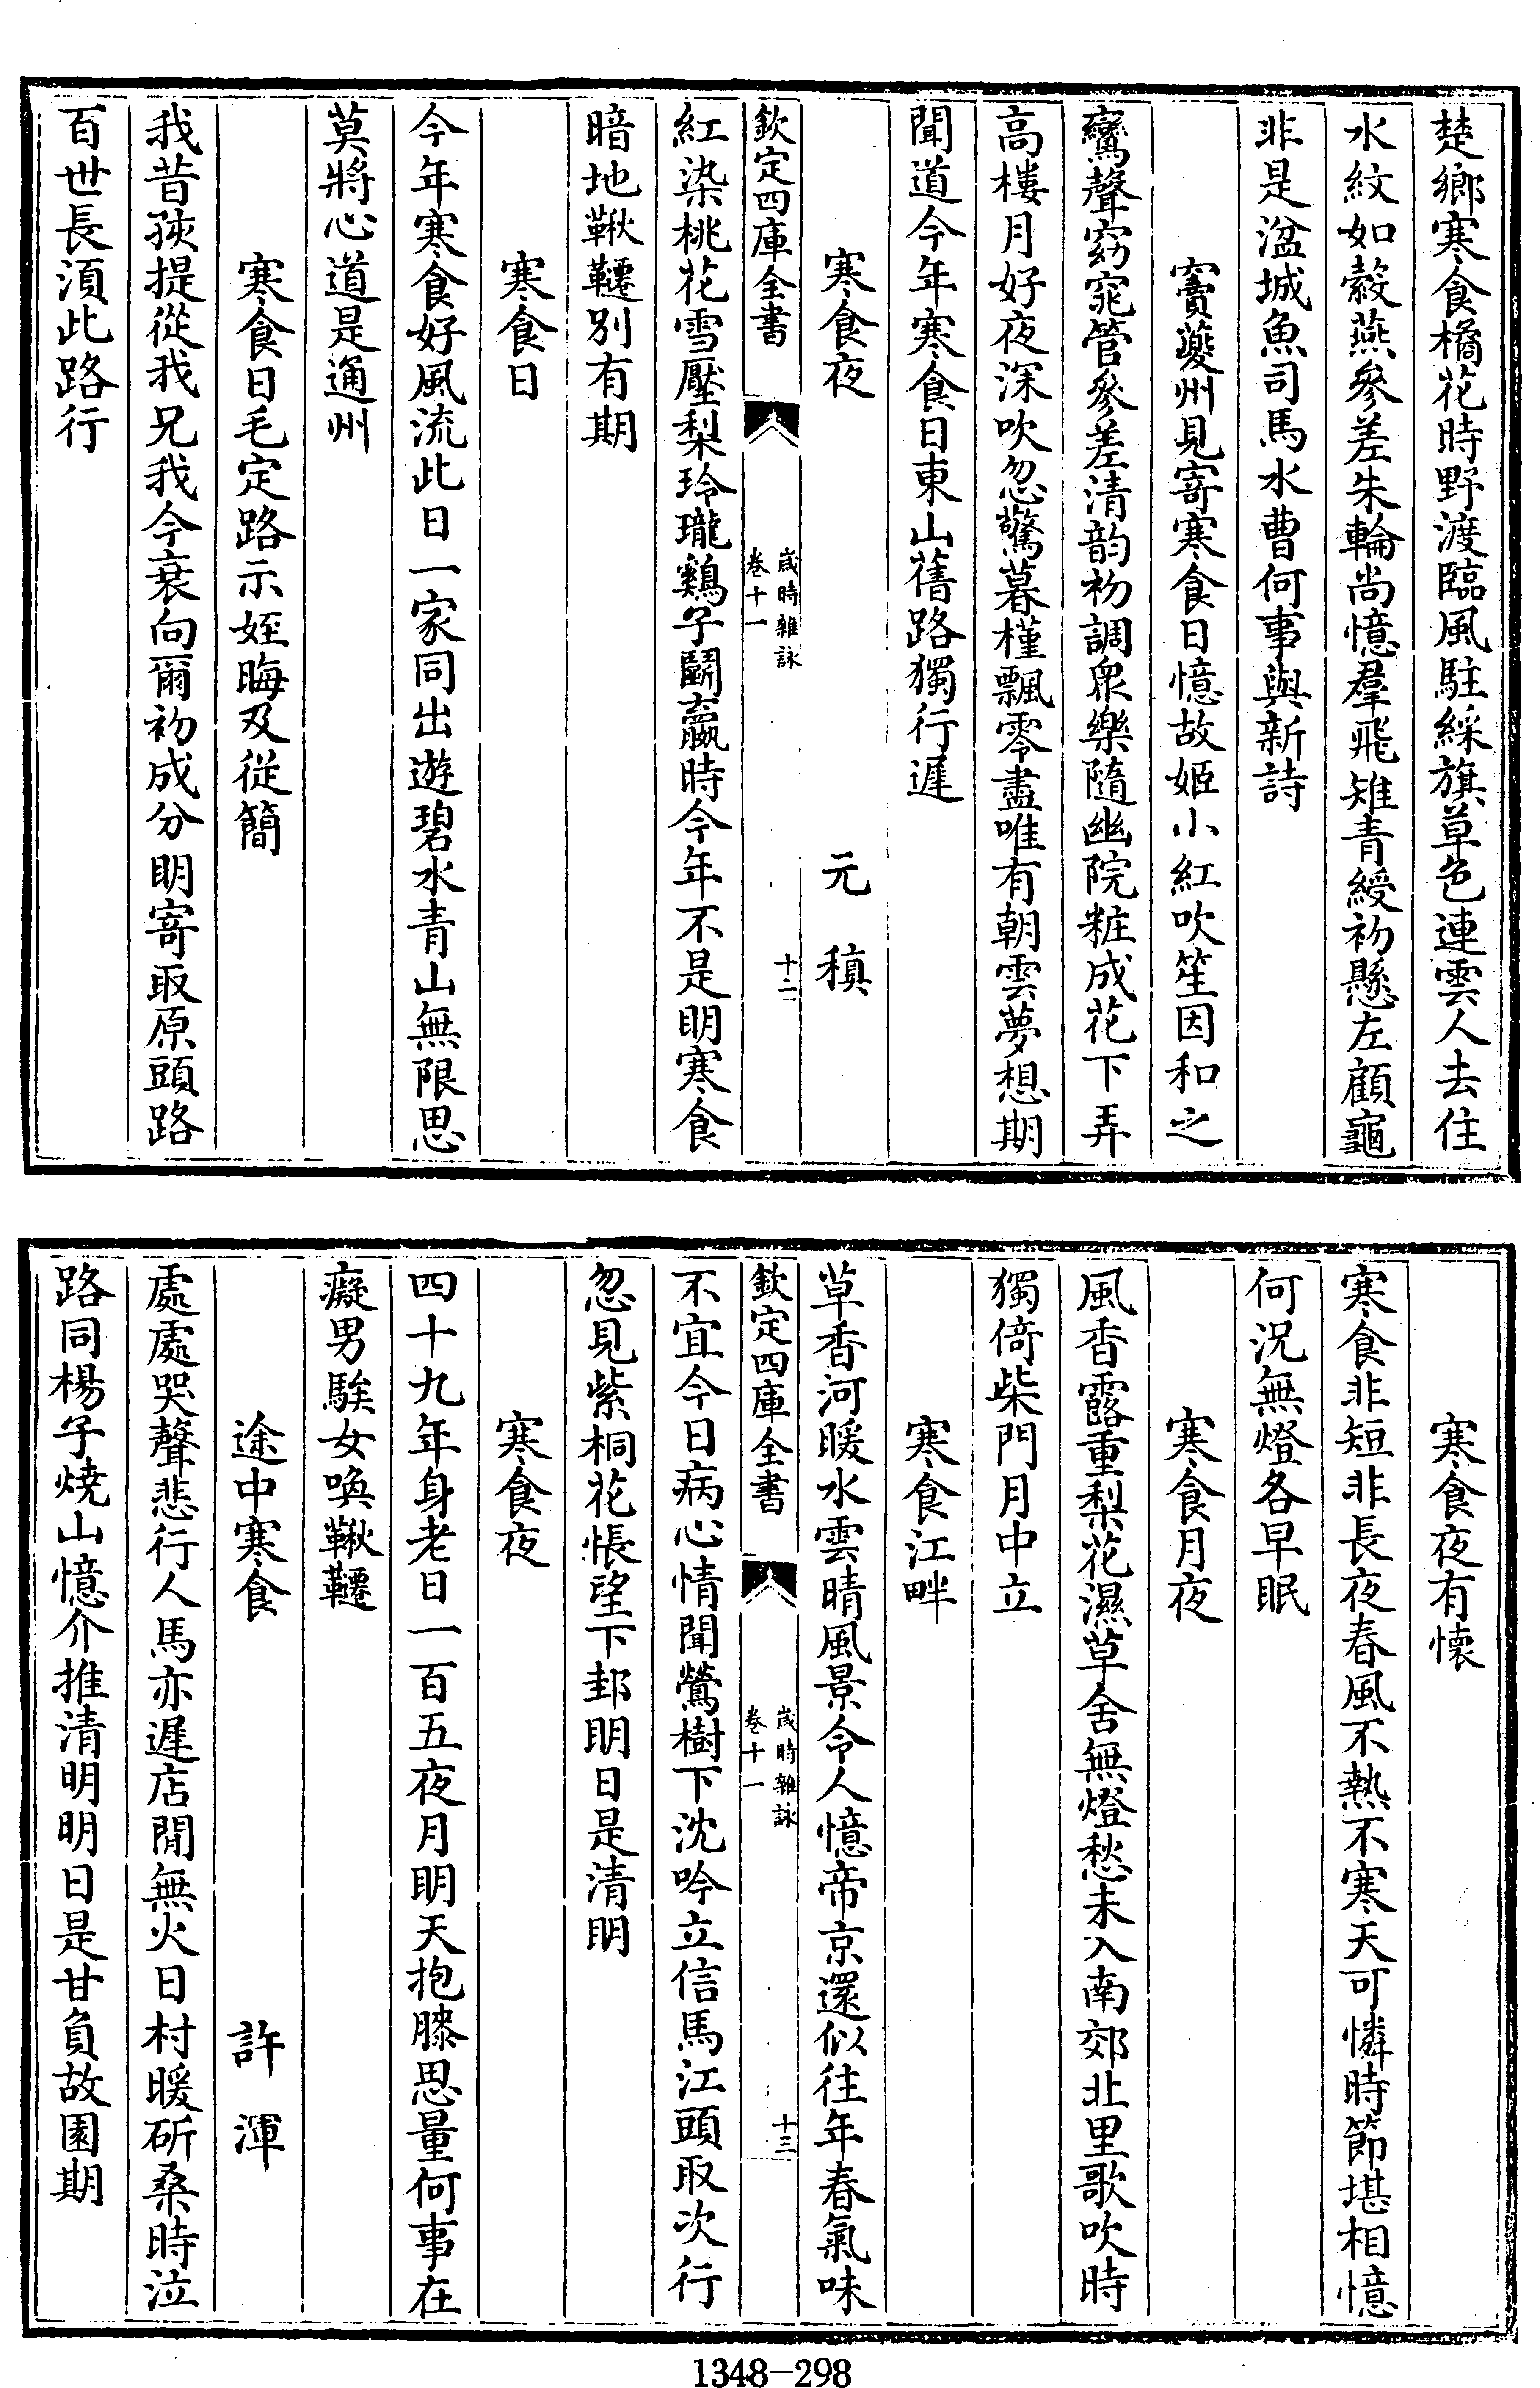 楚鄉寒食橘花時野渡臨風駐綵旗草色連雲人去住
水紋如縠燕參差朱輪尚憶羣飛雉青綬初懸左顧龜
非是湓城魚司馬水曹何事與新詩
竇夔州見寄寒食日憶故姬小紅吹笙因和之
鸞聲窈窕管參差清韵初調衆樂隨幽院粧成花下弄
高樓月好夜深吹忽驚暮槿飄零盡唯有朝雲夢想期
聞道今年寒食日東山舊路獨行遲
寒食夜 元稹
欽定四庫全書 歲時雜詠 卷十一 十二
紅染桃花雪壓梨玲瓏鷄子鬬贏時今年不是明寒食
暗地鞦韆別有期
寒食日
今年寒食好風流此日一家同出遊碧水青山無限思
莫將心道是通州
寒食日毛定路示姪晦及從簡
我昔孩提從我兄我今衰向爾初成分明寄取原頭路
百世長須此路行
寒食夜有懷
寒食非短非長夜春風不熱不寒天可憐時節堪相憶
何況無燈各早眠
寒食月夜
風香露重梨花濕草舍無燈愁未入南郊北里歌吹時
獨倚柴門月中立
寒食江畔
草香河暖水雲晴風景令人憶帝京還似往年春氣味
欽定四庫全書 歲時雜詠 卷十一 十三
不宜今日病心情聞鶯樹下沈吟立信馬江頭取次行
忽見紫桐花悵望下邽明日是清明
寒食夜
四十九年身老日一百五夜月明天抱膝思量何事在
癡男騃女喚鞦韆
途中寒食 許渾
處處哭聲悲行人馬亦遲店閒無火日村暖斫桑時泣
路同楊子燒山憶介推清明明日是甘負故園期
1348-298